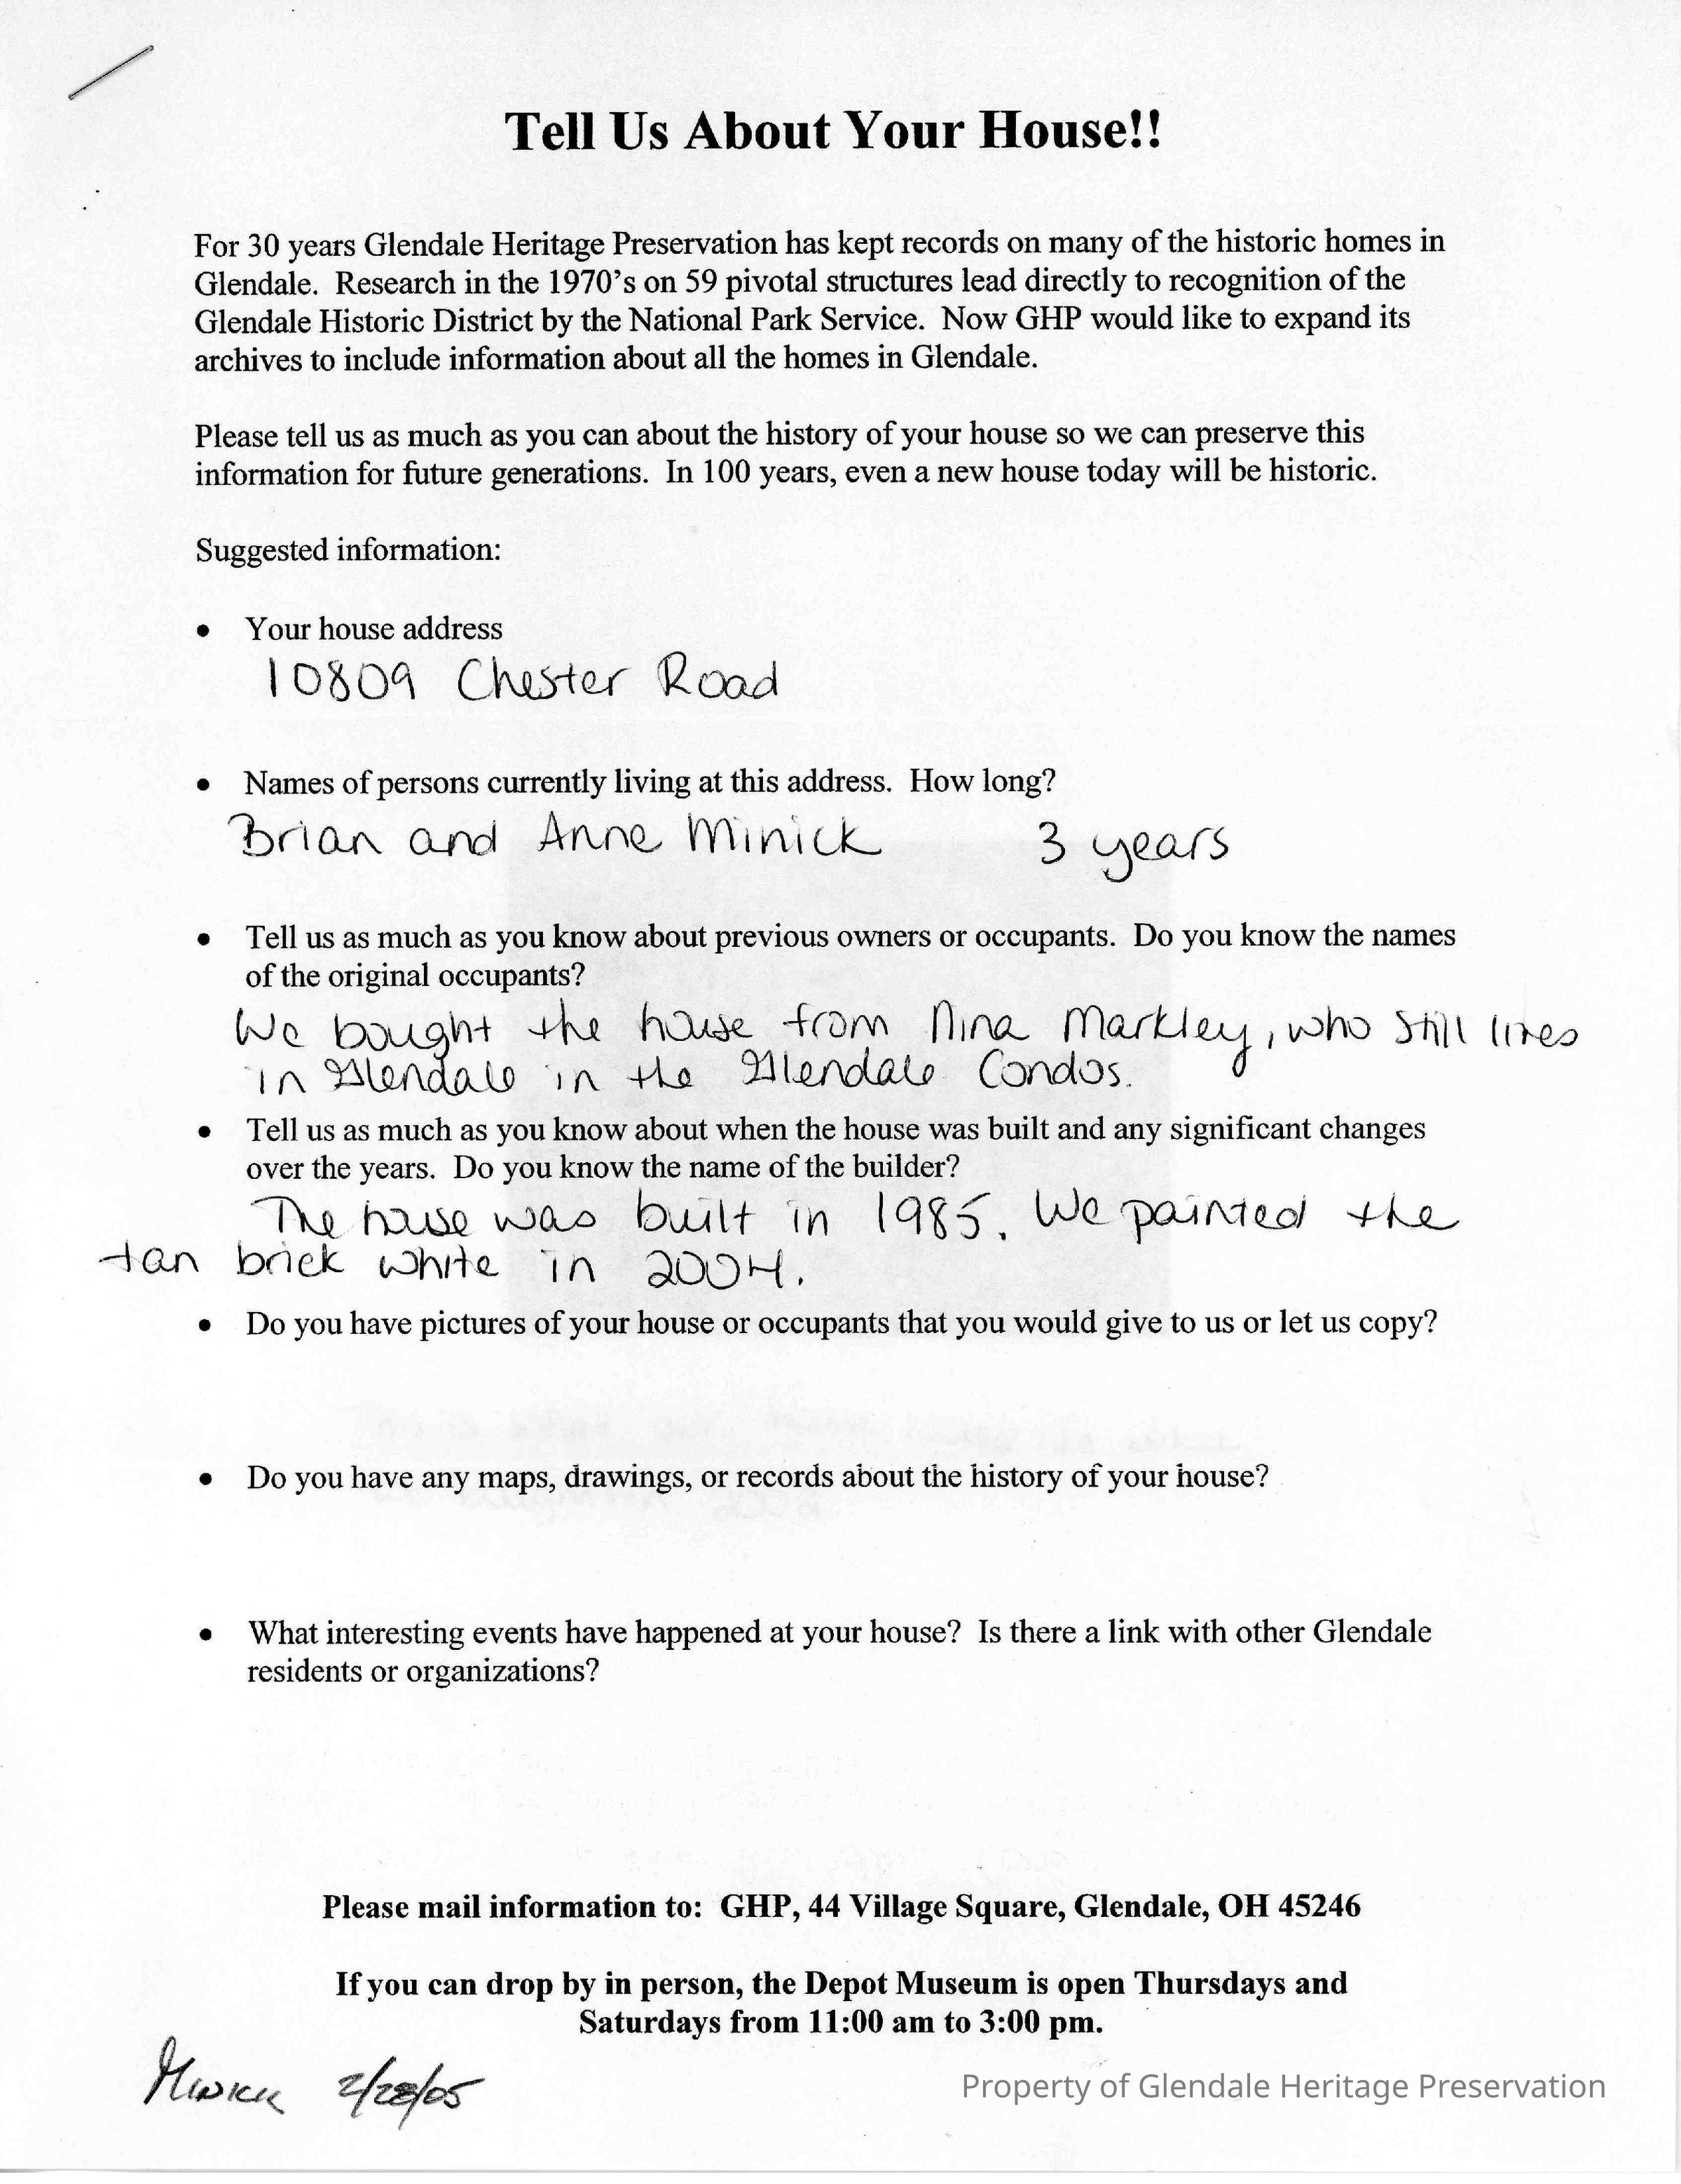 Tell Us About Your House!!
For 30 years Glendale Heritage Preservation has kept records on many of the historic homes in
Glendale. Research in the 1970's on 59 pivotal structures lead directly to recognition of the
Glendale Historic District by the National Park Service. Now GHP would like to expand its
archives to include information about all the homes in Glendale.
Please tell us as much as you can about the history of your house so we can preserve this
information for future generations. In 100 years, even a new house today will be historic.
Suggested information:
• Your house address
10809 Chester Road
• Names of persons currently living at this address. How long?
Brian and Anne Minick 3 years
• Tell us as much as you know about previous owners or occupants. Do you know the names
of the original occupants?
We bought the house from Nina Markley, who still lives
in Glendale in the Glendale Condos.
• Tell us as much as you know about when the house was built and any significant changes
over the years. Do you know the name of the builder?
The house was built in 1985. We painted the
tan brick white in 2004.
• Do you have pictures of your house or occupants that you would give to us or let us copy?
• Do you have any maps, drawings, or records about the history of your house?
• What interesting events have happened at your house? Is there a link with other Glendale
residents or organizations?
Please mail information to: GHP, 44 Village Square, Glendale, OH 45246
If you can drop by in person, the Depot Museum is open Thursdays and
Saturdays from 11:00 am to 3:00 pm.
Minick 2/28/05
Property of Glendale Heritage Preservation